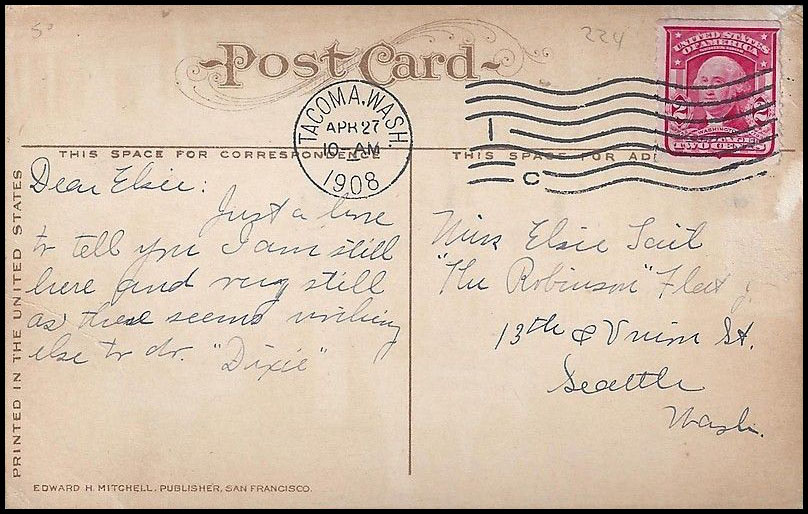 50
224
Post Card
UNITED STATES
OF AMERICA
TWO CENTS
TACOMA, WASH.
APR 27
10-AM
1908
1
C
THIS SPACE FOR CORRESPONDENCE
THIS SPACE FOR AD
PRINTED IN THE UNITED STATES
Dear Elsie:
Just a line
to tell you I am still
here and very still
as there seems nothing
else to do. "Dixie"
Miss Elsie Tait
"The Robinson" Flats
13th & Union St.
Seattle
Wash.
EDWARD H. MITCHELL, PUBLISHER, SAN FRANCISCO.